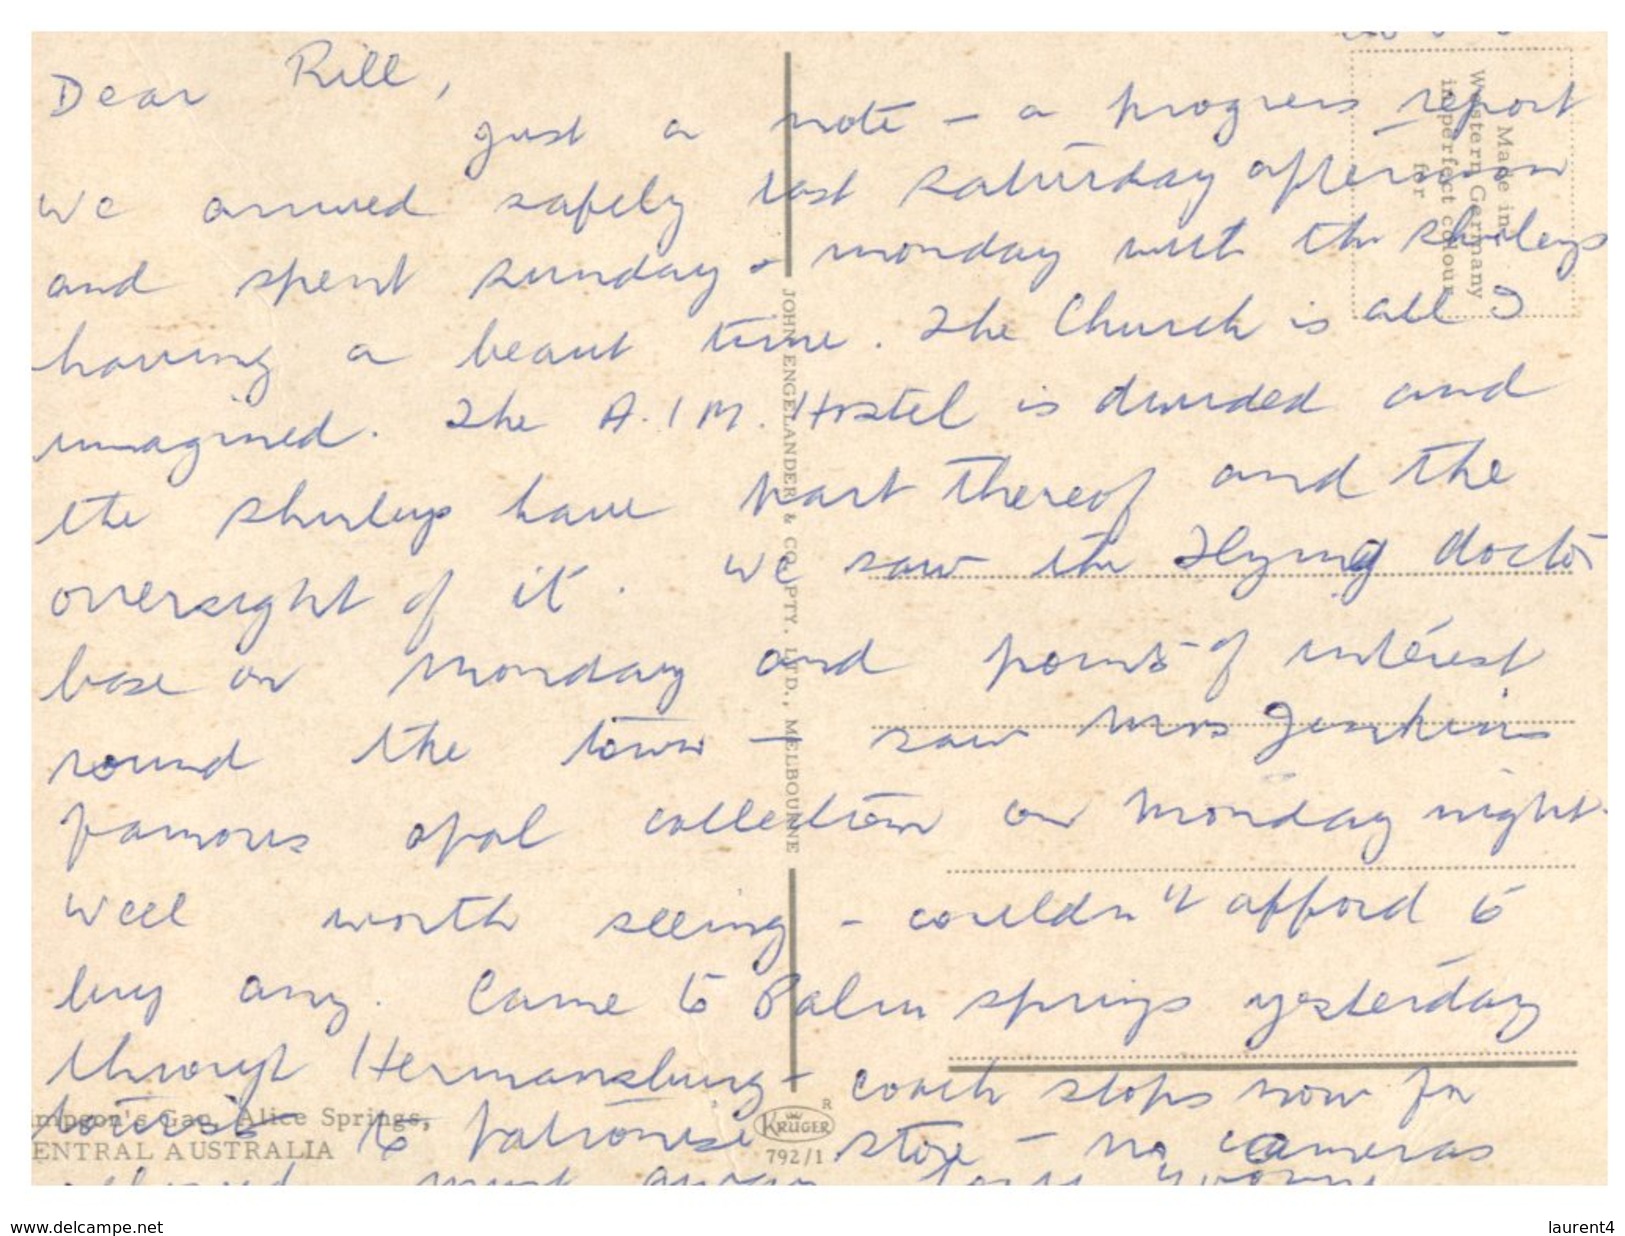 Dear Rill,
just a note - a progress report
we arrived safely last saturday afternoon
and spent sunday & monday with the Shirleys
having a beaut time. The Church is all I
imagined. The A.I.M. Hostel is divided and
the Shirleys have part thereof and the
oversight of it. We saw the Flying doctor
base on Monday and points of interest
round the town - saw Mrs Jenkins
famous opal collection on Monday night.
Well worth seeing - couldn't afford to
buy any. Came to Palm springs yesterday
through Hermansburg - coach stops now for
tourists to patronise store - no cameras
allowed must
Made in
Western Germany
imperfect colour
for
JOHN ENGELANDER & CO. PTY. LTD., MELBOURNE
impson's Gap, Alice Springs,
ENTRAL AUSTRALIA
KRÜGER
R
792/1
www.delcampe.net
laurent4